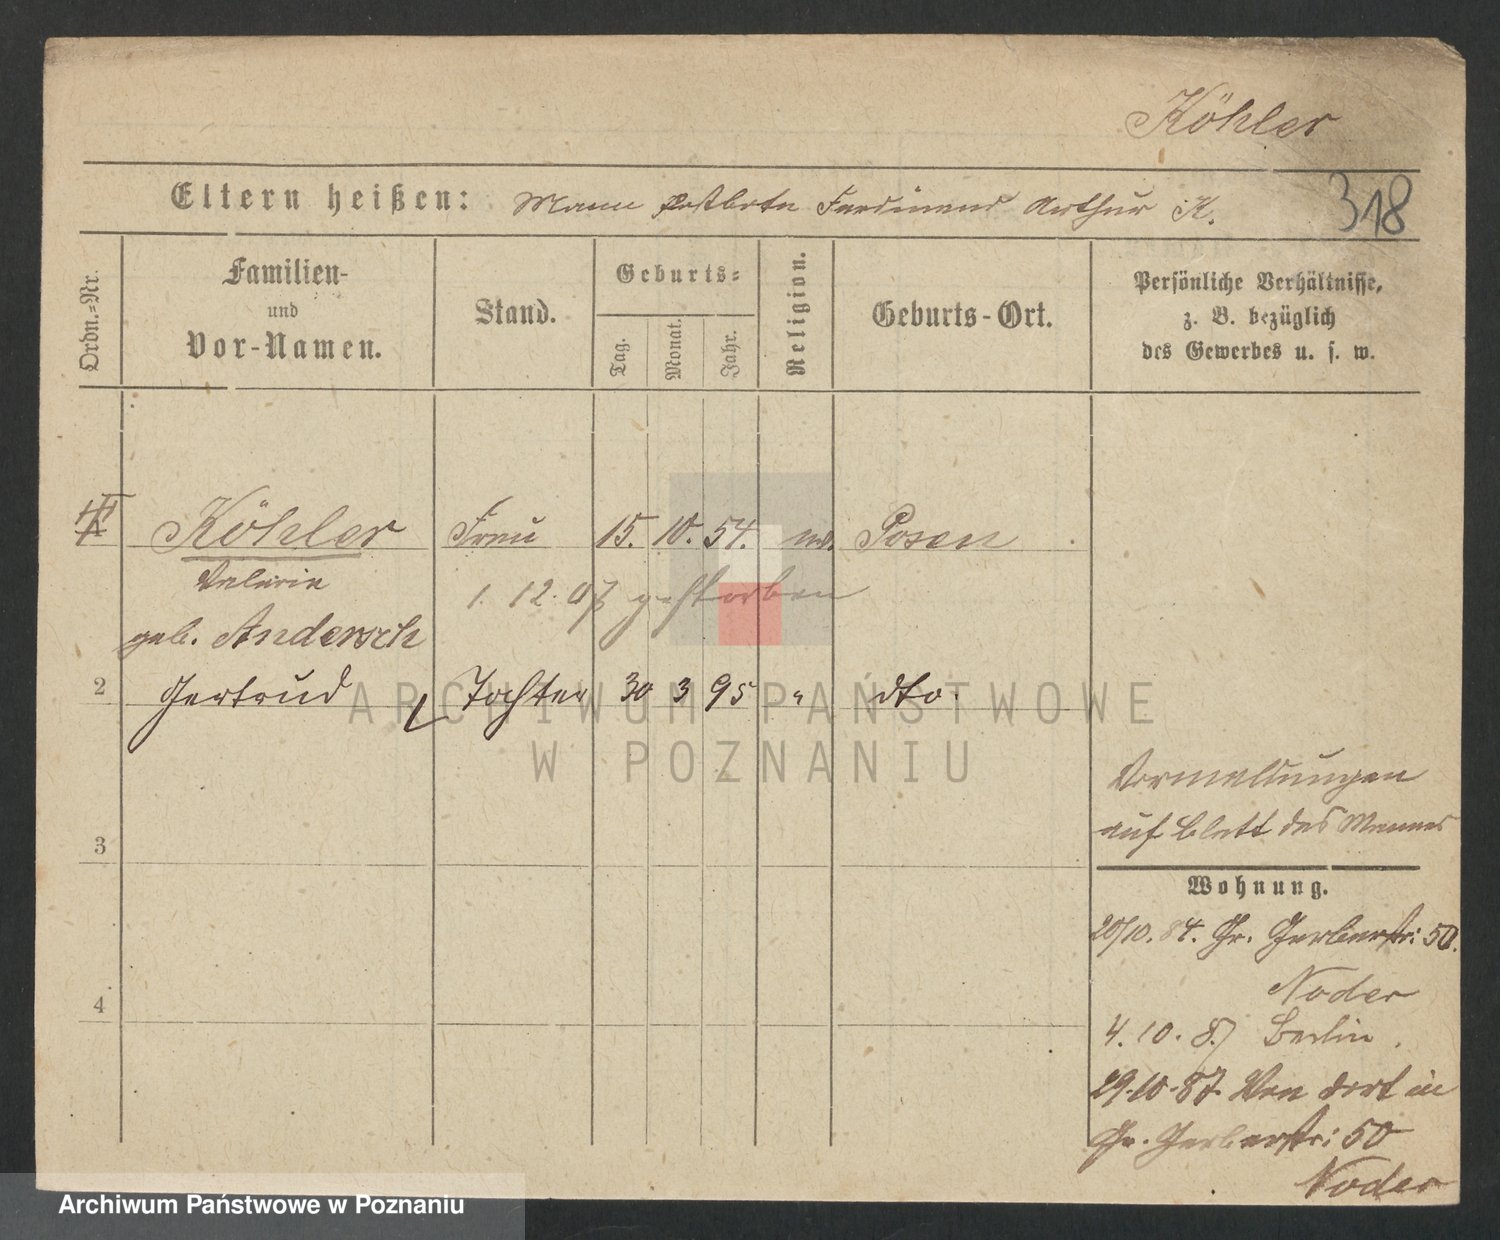 Köhler
318
Eltern heißen: Mann Postbote Ferdinand Arthur K.
Ordn.=Nr.
Familien-
und
Vor-Namen.
Stand.
Geburts=
Tag.
Monat.
Jahr.
Religion.
Geburts-Ort.
Persönliche Verhältnisse,
z. B. bezüglich
des Gewerbes u. s. w.
Köhler Frau 15. 10. 54. Posen
Valerie
1. 12. 07 gestorben
geb. Andersch
2 Gertrud Tochter 30 3 95 " dto.
ARCHIWUM PAŃSTWOWE
W POZNANIU
Vormeldungen
auf Blatt des Mannes
3
Wohnung.
20/10. 84. Gr. Gerberstr: 50.
Noder
4
4. 10. 87 Berlin.
29.10.87. Von dort in
Gr. Gerberstr: 50
Noder
Archiwum Państwowe w Poznaniu